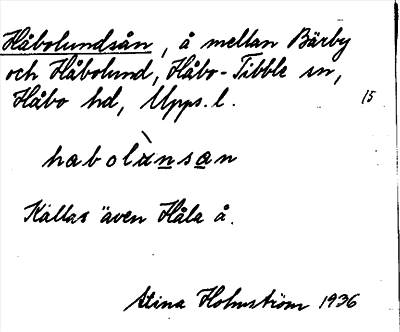 Håbolundsån, å mellan Bärby
och Håbolund, Håbo-Tibble sn,
Håbo hd, Upps. l.
15
habolùnsan
Kallas även Håla å.
Stina Holmström 1936